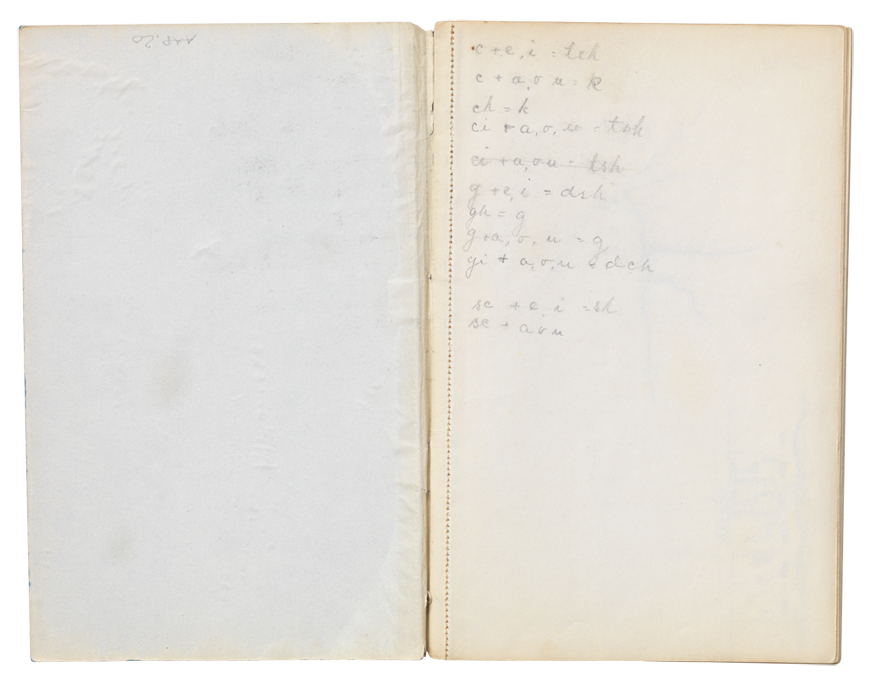 AAP. 20
c + e, i = tsh
c + a, o u = k
ch = k
ci + a, o, u = tsh
ci + a, o u = tsh
g + e, i = dsh
gh = g
g + a, o, u = g
gi + a, o, u = dch
sc + e, i = sh
sc + a o u